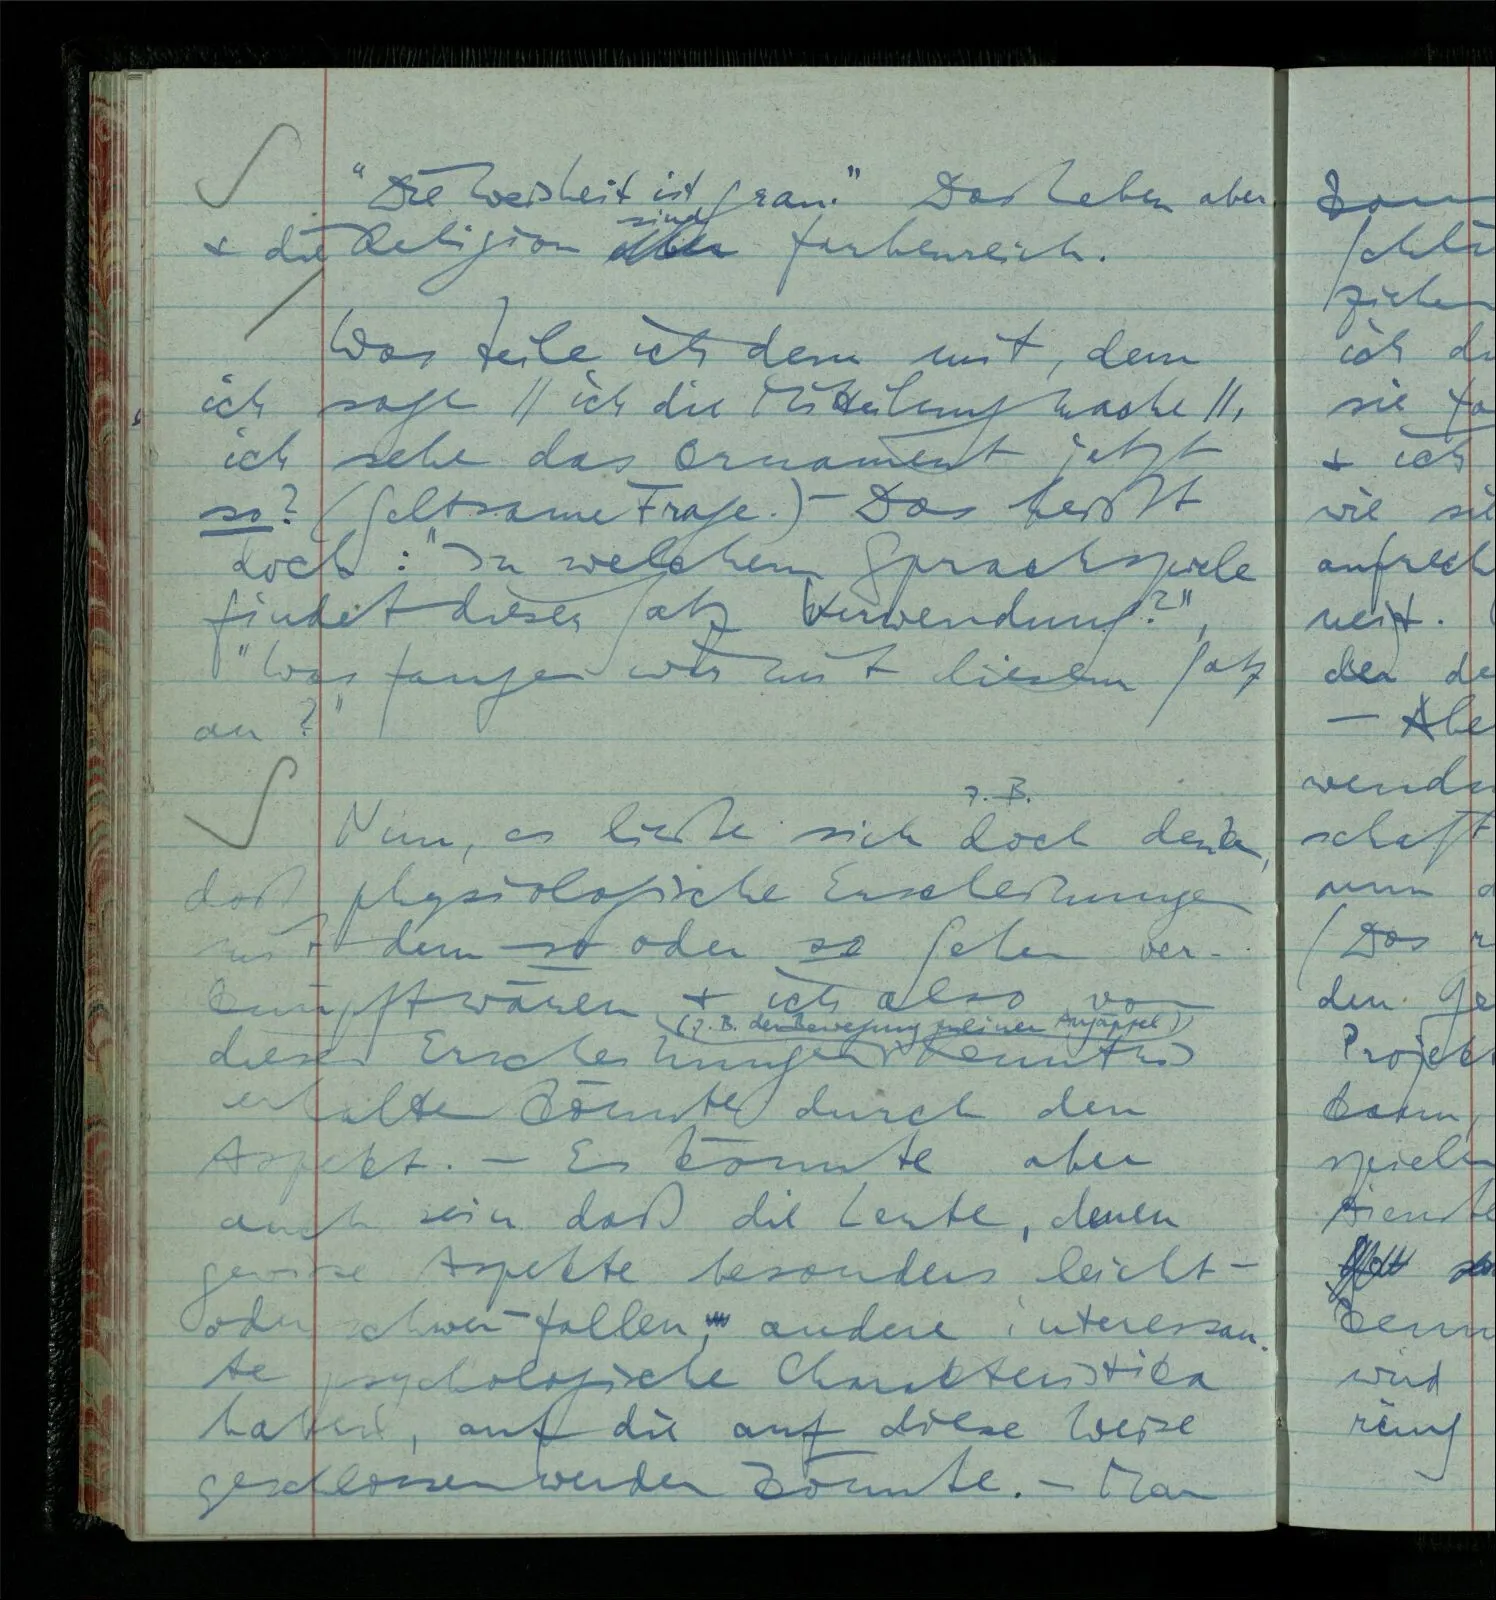 "Die Weisheit ist grau." Das Leben aber
+ die Religion sind farbenreich.
Was teile ich dem mit, dem
ich sage // ich die Mitteilung mache //,
ich sehe das Ornament jetzt
so? (Seltsame Frage.) – Das heißt
doch: "In welchem Sprachspiele
findet dieser Satz Verwendung?",
"Was fangen wir mit diesem Satz
an?"
z. B.
Nun, es ließe sich doch denken,
daß physiologische Erscheinungen
mit dem so oder so Sehen ver-
knüpft wären + ich also von
(z. B. der Bewegung meiner Augäpfel)
diesen Erscheinungen Kenntnis
erhalten könnte durch den
Aspekt. – Es könnte aber
auch sein daß die Leute, denen
gewisse Aspekte besonders leicht-
oder schwer fallen, andere interessan-
te psychologische Charakteristika
haben, auf die auf diese Weise
geschlossen werden könnte. – Man
ziehen
ich
+ ich
wie
den
– Abe
wendu
schaft
nun
(Das
den Ge
Projek
kann,
spielen
wird